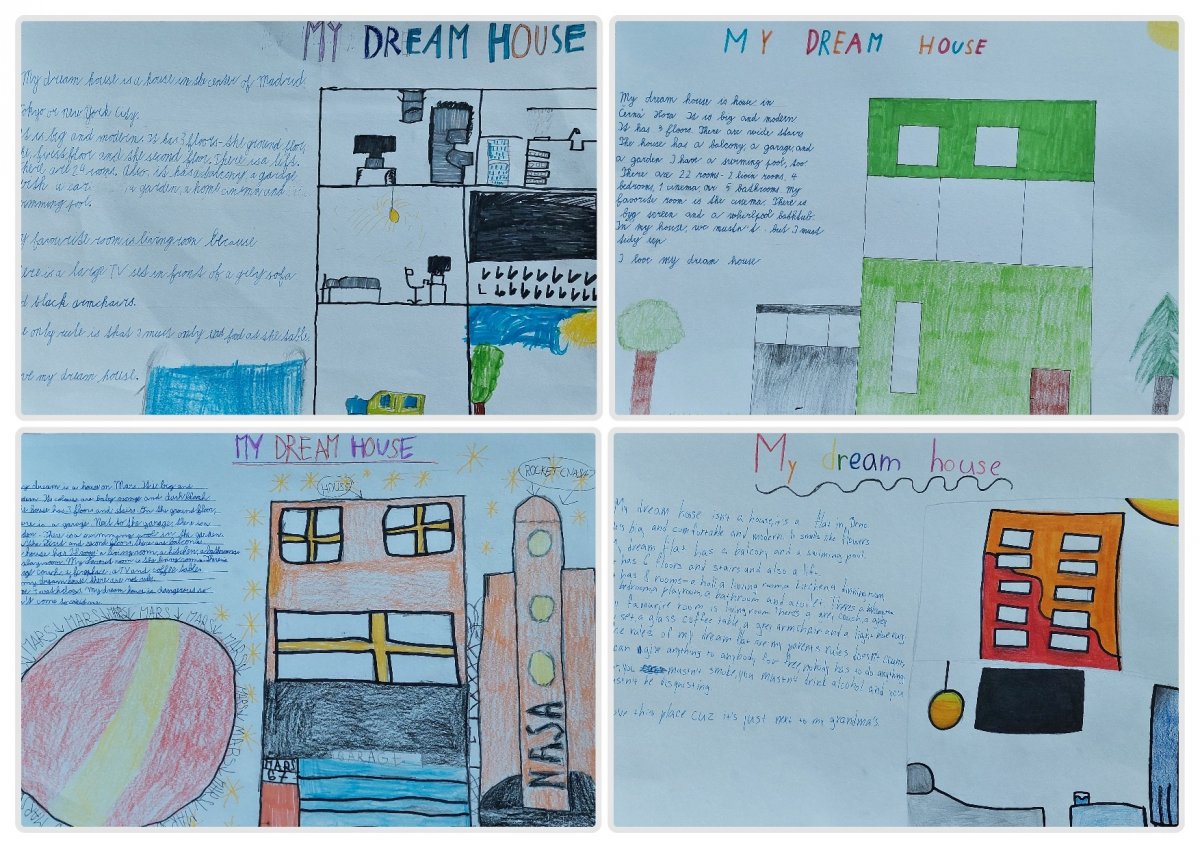 MY DREAM HOUSE
My dream house is a house in the center of Madrid,
Tokyo or new York City.
It is big and modern. It has 3 floors - the ground floor,
the first floor and the second floor. There is a lift.
there are 24 rooms. Also is has balcony a garage
with a car a garden, a home cinema and
swimming pool.
favourite room is living room because
there is a large TV set in front of a grey sofa
black armchairs.
only rule is that I must only food at the table.
my dream house.
MY DREAM HOUSE
My dream house is house in
Černá Hora It is big and modern
It has 3 floors. There are wide stairs
The house has a balcony, a garage, and
a garden I have a swiming pool, too
There are 22 rooms - 2 livin rooms, 4
bedrooms, 1 cinema or 5 bathrooms My
favorite room is the cinema. There is
byg screen and a whirlpool bathtub.
In my house, we mustn't . but I must
tidy
I love my dream house
MY DREAM HOUSE
HOUSE
ROCKET (NASA)
dream is a house on Mars. It is big and
The colours are baby orange and dark black
house has 3 floors and stairs On the ground floor,
there is a garage. Next to the garage, there is a
There is a swimming pool in the garden
first and second floor, there are balconies
a living room, a kitchen, a bathroom
room. My favourite room is the living room There is
couch, a fireplace a TV and coffee table
my dream house there are not rule.
My dream house is dangerous so
MARS MARS MARS MARS MARS MARS MARS MARS
NASA
GARAGE
MARS
67
My dream house
My dream house isn't a house, is a flat in Brno
is big and comfortable and modern It smells like flowers
dream flat has a balcony and a swiming pool.
has floors and stairs and also a lift
has 8 rooms - a hall, a living room a kitchen a dining room,
bedroom a playroom, a bathroom and a toilet
favourite room is livingroom There's a couch, a
set, a glass coffee table, a grey armchair and a light
rules of my dream flat are my parents rules doesn't count,
can give anything to anybody for free, nobody has to do anything
you mustn't smoke, you mustn't drink alcohol and you
mustn't be disgusting
love this place cuz it's just next to my grandma's